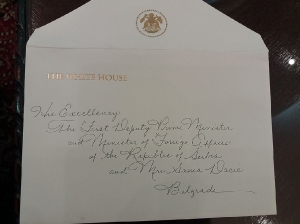 THE WHITE HOUSE
His Excellency
The First Deputy Prime Minister
and Minister of Foreign Affairs
of the Republic of Serbia
and Mrs. Dacic
Belgrade